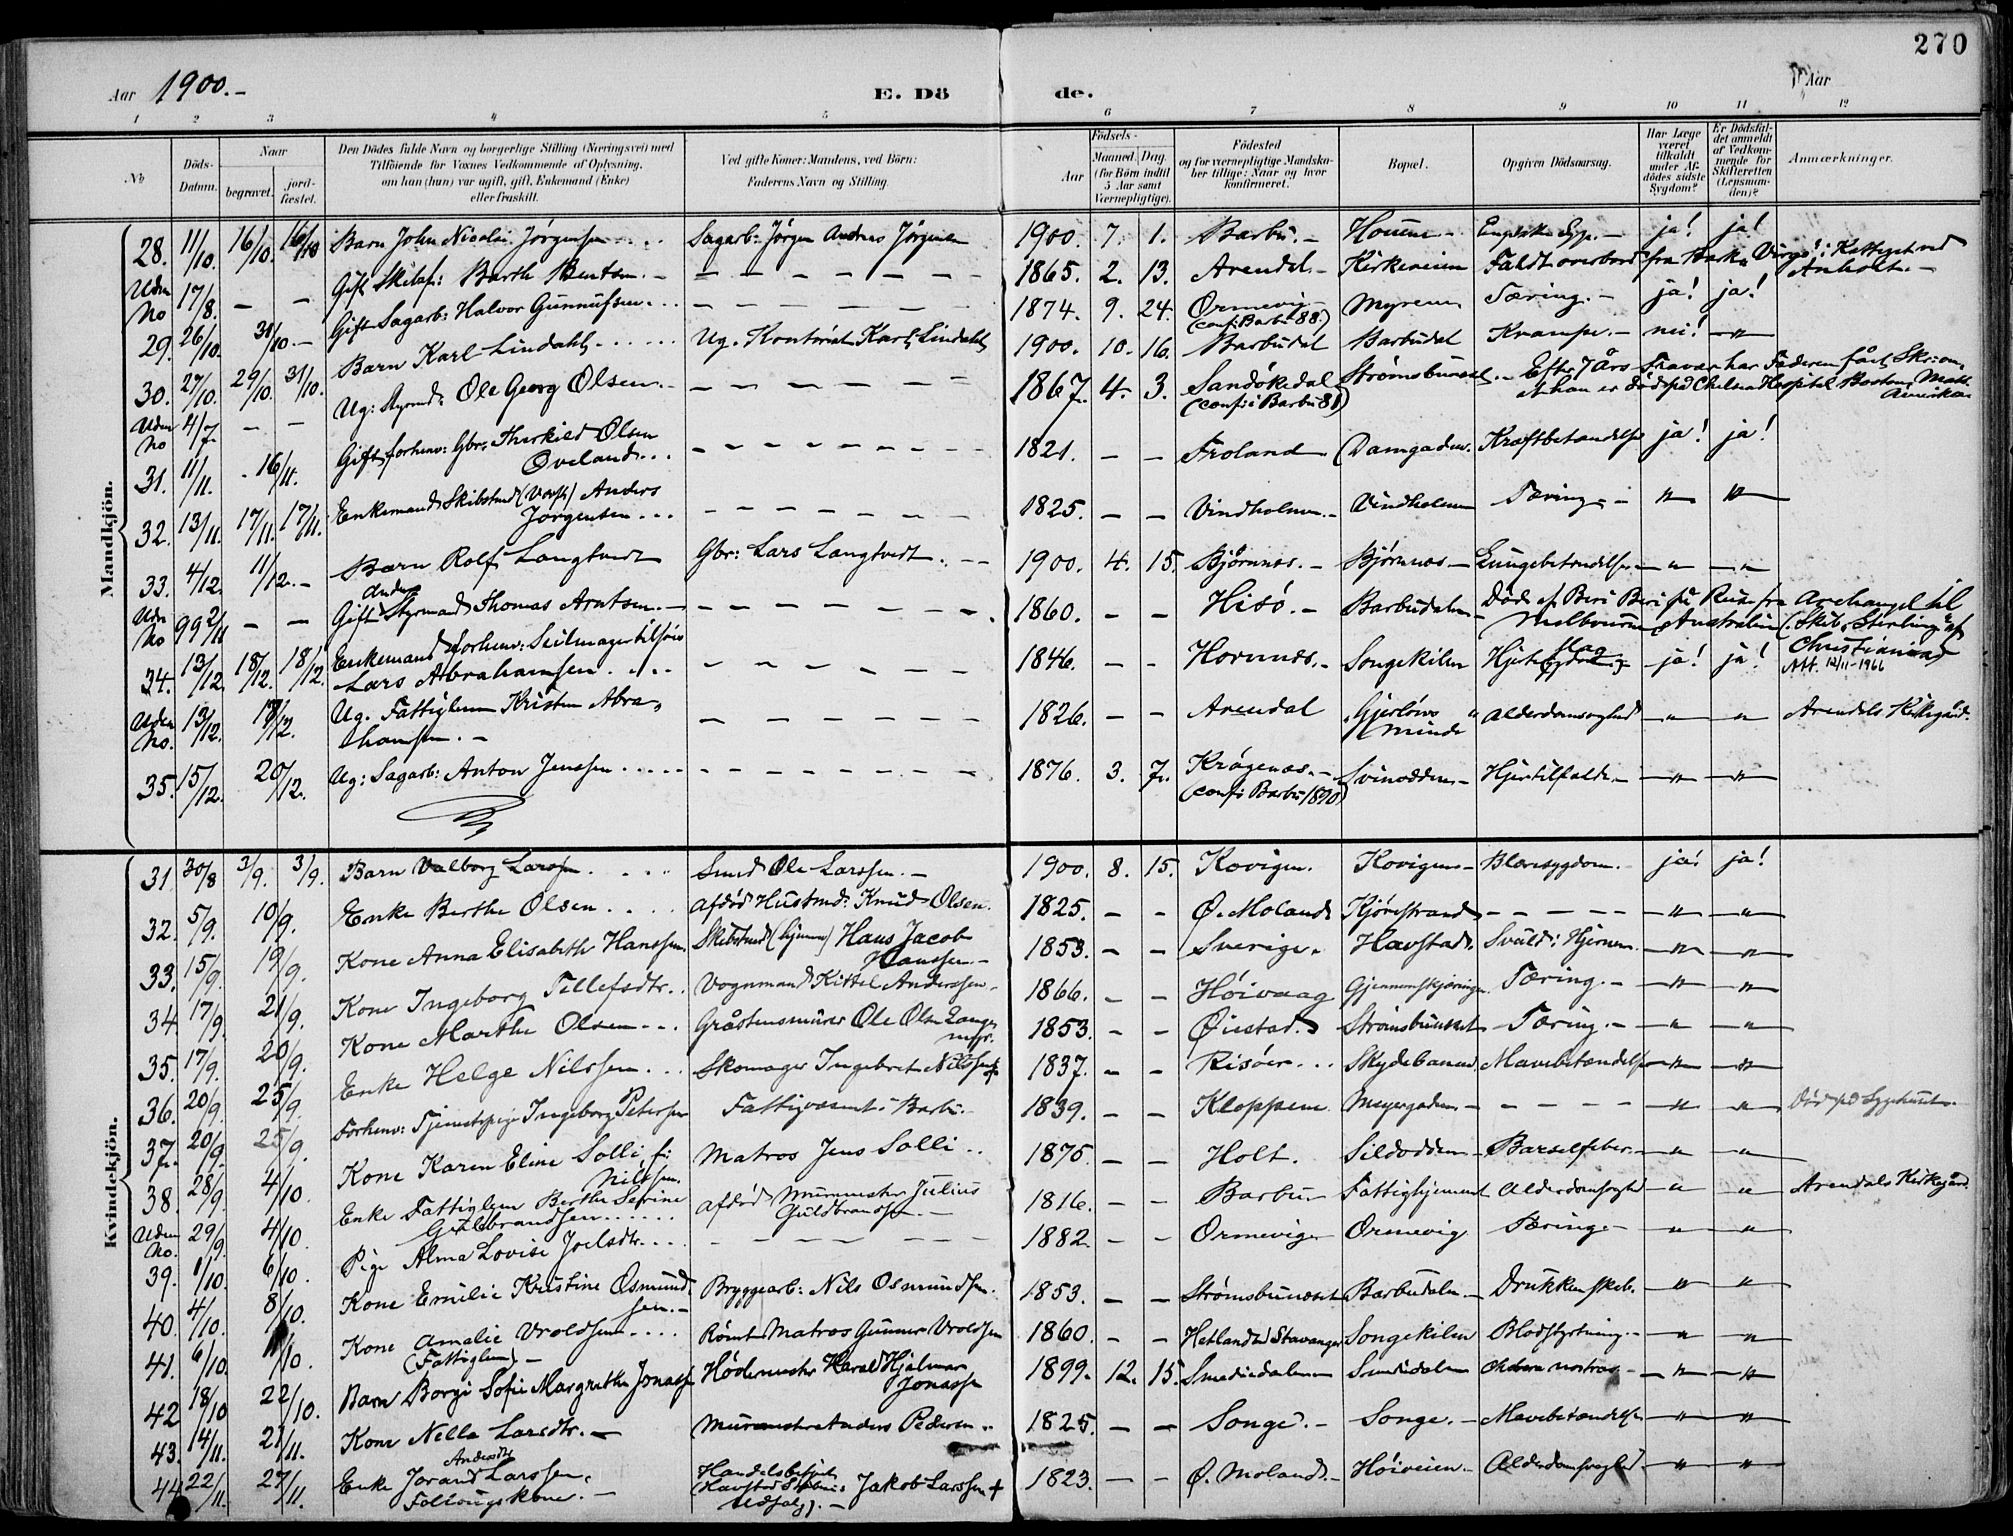 270
Aar 1900.-
E. Dö de.
Aar
1 2 3 4 5 6 7 8 9 10 11 12
No
Döds-Datum.
Naar
begravet.
jord-fæstet.
Den Dödes fulde Navn og borgerlige Stilling (Næringsvei) med Tilföiende for Voxnes Vedkommende af Oplysning, om han (hun) var ugift, gift, Enkemand (Enke) eller fraskilt.
Ved gifte Koner: Mandens, ved Börn: Faderens Navn og Stilling.
Födsels-
Aar
Maaned. Dag.
(for Börn indtil 5 Aar samt Værnepligtige).
Födested og for værnepligtige Mandskaber tillige: Naar og hvor konfirmeret.
Bopæl.
Opgiven Dödsaarsag.
Har Læge været tilkaldt under Afdödes sidste Sygdom?
Er Dödsfaldet anmeldt af Vedkommende for Skifteretten (Lensmanden)?
Anmærkninger.
Mandkjön.
28. 11/10. 16/10. 16/10 Barn John Nicolai Jörgensen.... Sagarb: Jörgen Andreas Jörgensen 1900. 7. 1. Barbu.- Houene.- Engelske Syge.- ja! ja!
Uden No 17/8. - - Gift Skibsf: Barth Bentsen.- 1865. 2. 13. Arendal.- Kirkeveien Faldt overbord fra Bark "Virgo" i Kattegat ved Anholt.-
29. 26/10. 30/10.- Gift Sagarb: Halvor Gunnufsen... 1874. 9. 24. Ormevig- (conf: Barbu 88.) Myrene Tæring.- ja! ja!
30. 27/10. 29/10. 31/10. Barn Karl Lindahl...... Ug. Kontorist Karl Lindahl 1900. 10. 16. Barbudal Barbudal Krampe.- nei! - " -
Uden No 4/7. - - Ug: Styrmd: Ole Georg Olsen.- 1867. 4. 3. Sandökedal (conf: i Barbu 81) Strömsbunæset.- Efter 7 Års Fravær har Faderen fået Skr: om, at han er död på Chelsea Hospital Boston, Mass. Amerika.
31. 11/11. 16/11. Gift, forhenv: Gbr: Therkild Olsen Öveland... 1821. - - Froland. Damgaden. Kræftbetændelse ja! ja!
32. 13/11. 17/11. 17/11. Enkemand Skibstmd (Værft) Anders Jörgensen... 1825. - - Vindholmen.- Vindholmen Tæring.- " "
33. 4/12. 11/12.- Barn Rolf Langtvedt Gbr: Lars Langtvedt. 1900. 4. 15. Björnnes.- Björnnes- Lungebetændelse - " - " -
Uden No 99 2/11 - - Gift Styrmand Thomas Anders Arntsen.- 1860. - - Hisö.- Barbudalen Död af Beri Beri på Reise fra Archangel til Melbourne, Australien (Skib "Sterling" af Christiania) Att. 12/11-1966
34. 13/12. 18/12. 18/12. Enkemand forhenv: Seilmager tilsjös Lars Abrahamsen.... 1846. - - Hovnnes.- Songekilen Hjerteslag ja! ja!
Uden No. 13/12. 18/12. Ug. Fattiglem Kristen Abrahamsen.- 1826. - - Arendal Gjerlöws minde Alderdomssvaghed - " - " Arendals Kirkegård.
35. 15/12. 20/12. Ug: Sagarb: Anton Jensen..... 1876. 3. 7. Krögenæs.- (conf: Barbu 1890) Svinodden.- Hjertilfælde.- - " - " -
Kvindekjön.
31 30/8 3/9. 3/9. Barn Valborg Larsen.... Smed Ole Larssen.- 1900. 8. 15. Kovigen. Kovigen.- Blæresygdom.- ja! ja!
32. 5/9. 10/9. Enke Berthe Olsen.... Afdöd Hustmd: Knud Olsen. 1825. - - Ö. Moland Kjörestrand - - - - - " - "
33. 15/9. 19/9. Kone Anna Elisabeth Hanssen. Skibstmd (hjemme) Hans Jacob Hanssen.- 1853. - - Sverige. Havstad. Svulst i Hjernen - " - "
34. 17/9. 21/9. Kone Ingeborg Tellefsdtr.. Vognmand Kittel Anderssen. 1866. - - Höivaag Gjennemskjæringen Tæring.- - " - "
35. 17/9. 20/9. Kone Marthe Olsen... Gråstensmurer Ole Olsen Langenes. 1853. - - Öiestad. Strömsbunæset Tæring.- - " - "
36. 20/9. 25/9. Enke Helge Nilssen... Skomager Ingebret Nilssen + 1837. - - Risöer... Skydebanen. Mavebetændelse - " - "
37. 20/9. 25/9. Forhenv: Tjenestepige Ingeborg Petersen Fattigvæsenet i Barbu.- 1839. - - Kloppene. Meyergaden.- - - - - - " - " Död på Sygehuset.
38. 28/9. 4/10. Kone Karen Eline Solli f: Nilssen. Matros Jens Solli.. 1875. - - Holt. Sildodden.- Barselfeber.- - " - "
Uden No. 29/9. 4/10. Enke Fattiglem Berthe Sevrine Guldbrandsen...... Afdöd Murmester Julius Guldbrandsen.- 1816. - - Barbu- Fattighjemmet Alderdomssvaghed - " - " Arendals Kirkegård.
39. 1/10. 6/10. Pige Alma Lovise Joelsdtr.... 1882. - - Ormevig- Ormevig. Tæring.- - " - "
40. 4/10. 8/10. Kone Emilie Kristine Osmundsen.- Bryggearb: Nils Osmundsen. 1853. - - Strömsbunæset Barbudalen.- Drukkenskab. - " - "
41. 6/10. 11/10. Kone Amalie Vroldsen.... (Fattiglem).- Römt Matros Gunner Vroldsen 1860. - - Hetland v/ Stavanger Songekilen Blodstyrtning.- - " - "
42 18/10 22/10. Barn Borgi Sofie Margrethe Jonassen Hödermester Harald Hjalmar Jonassen 1899. 12. 15. Smediedalen- Smedidalen Cholera nostras.- - " - "
43. 14/11. 21/11. Kone Nella Larsdtr.- Murmester Anders Pedersen.. 1825. - - Songe.- Songe.- Mavebetændelse - " - "
44 22/11. 27/11. Enke Jorand Andersdtr Larssen, Föllougskone.- Handelsbetjent Jakob Larssen + 1823. - - Ö. Moland.- Höiveien.- Alderdomssvaghed.- - " - "